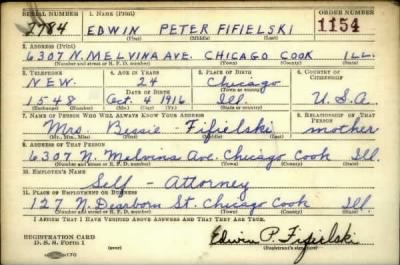 SERIAL NUMBER 1. NAME (Print) ORDER NUMBER
2784 EDWIN PETER FIFIELSKI 1154
(First) (Middle) (Last)
2. ADDRESS (Print)
6307 N. MELVINA AVE. CHICAGO COOK ILL.
(Number and street or R. F. D. number) (Town) (County) (State)
3. TELEPHONE 4. AGE IN YEARS 5. PLACE OF BIRTH 6. COUNTRY OF CITIZENSHIP
NEW. 24 Chicago
DATE OF BIRTH (Town or county)
1548 Oct. 4 1916 Ill U.S.A.
(Exchange) (Number) (Mo.) (Day) (Yr.) (State or country)
7. NAME OF PERSON WHO WILL ALWAYS KNOW YOUR ADDRESS 8. RELATIONSHIP OF THAT PERSON
Mrs. Bessie - Fifielski mother
(Mr., Mrs., Miss) (First) (Middle) (Last)
9. ADDRESS OF THAT PERSON
6307 N. Melvina Ave. Chicago Cook Ill
(Number and street or R. F. D. number) (Town) (County) (State)
10. EMPLOYER'S NAME
Self - Attorney
11. PLACE OF EMPLOYMENT OR BUSINESS
127 N. Dearborn St. Chicago Cook Ill
(Number and street or R. F. D. number) (Town) (County) (State)
I AFFIRM THAT I HAVE VERIFIED ABOVE ANSWERS AND THAT THEY ARE TRUE.
REGISTRATION CARD
D. S. S. Form 1 Edwin P. Fifielski
(Registrant's signature)